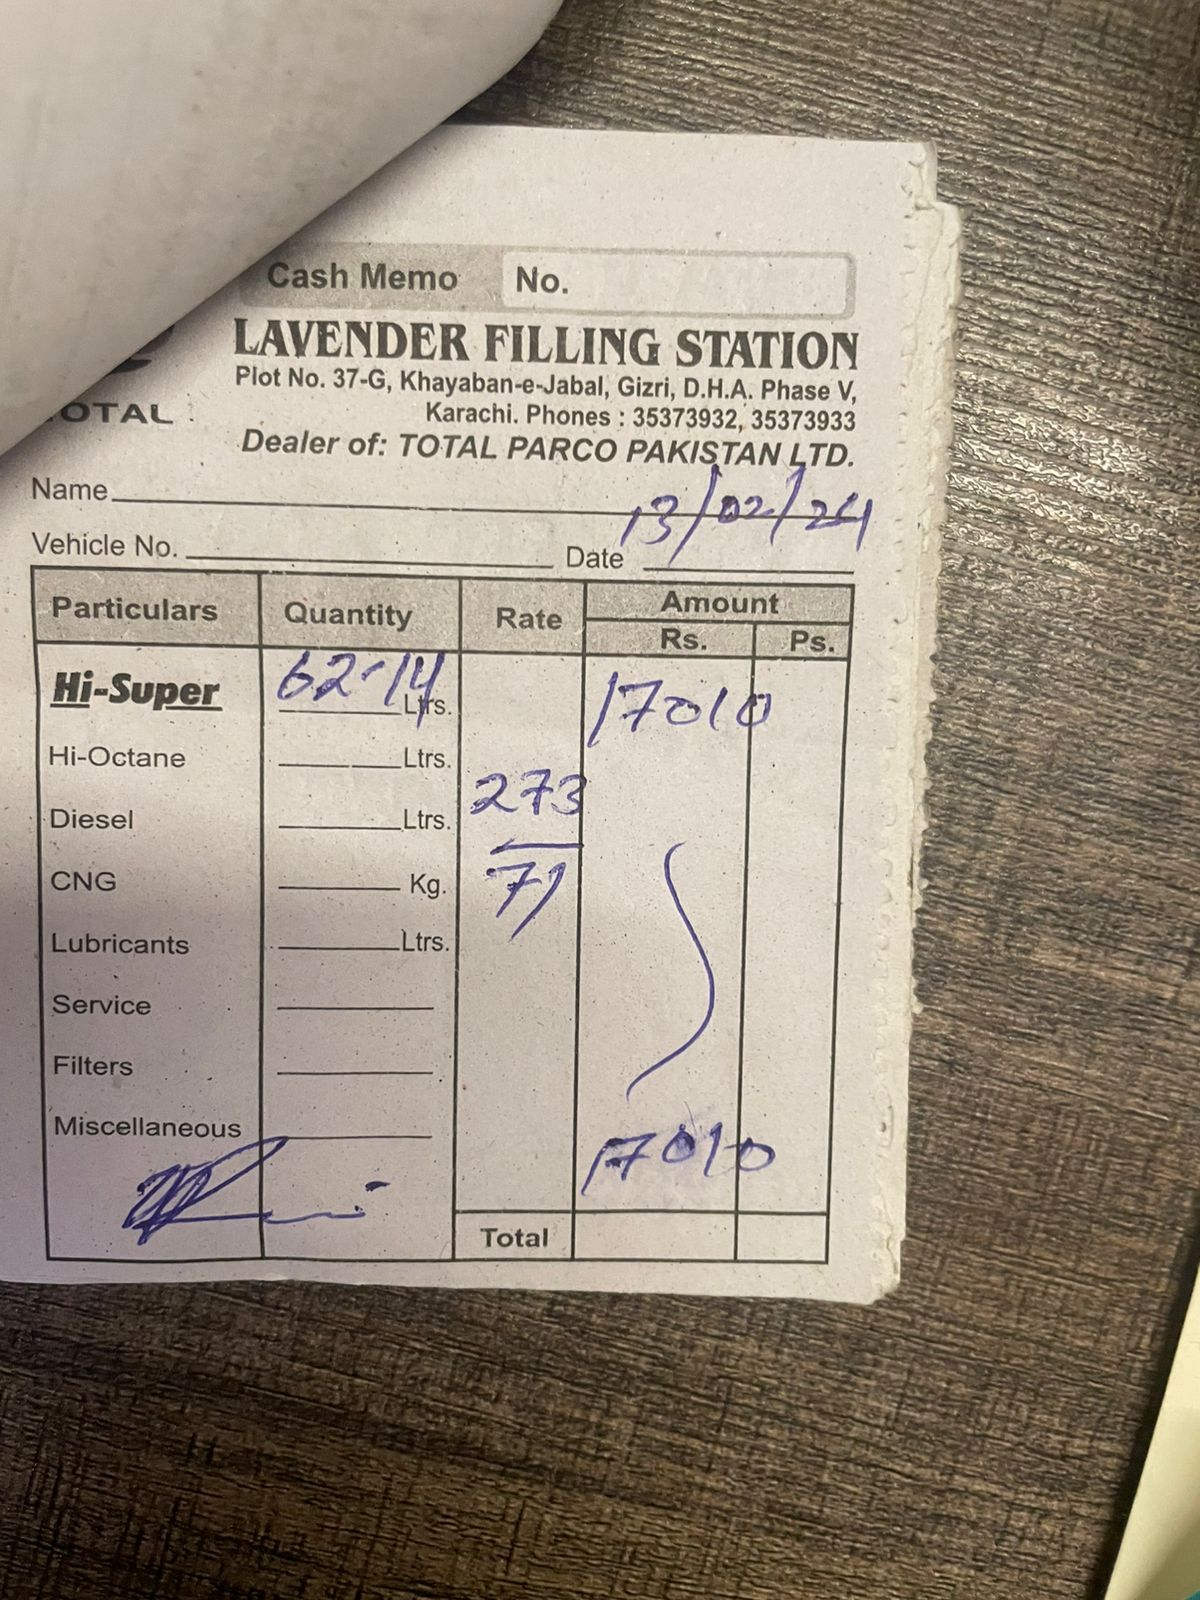 Cash Memo No.
LAVENDER FILLING STATION
Plot No. 37-G, Khayaban-e-Jabal, Gizri, D.H.A. Phase V,
Karachi. Phones : 35373932, 35373933
OTAL
Dealer of: TOTAL PARCO PAKISTAN LTD.
Name
Vehicle No. Date 13/02/24
Particulars Quantity Rate Amount
Rs. Ps.
Hi-Super 62-14 Ltrs. 17010
Hi-Octane Ltrs.
273
Diesel Ltrs.
CNG Kg. 71
Lubricants Ltrs.
Service
Filters
Miscellaneous
17010
Total